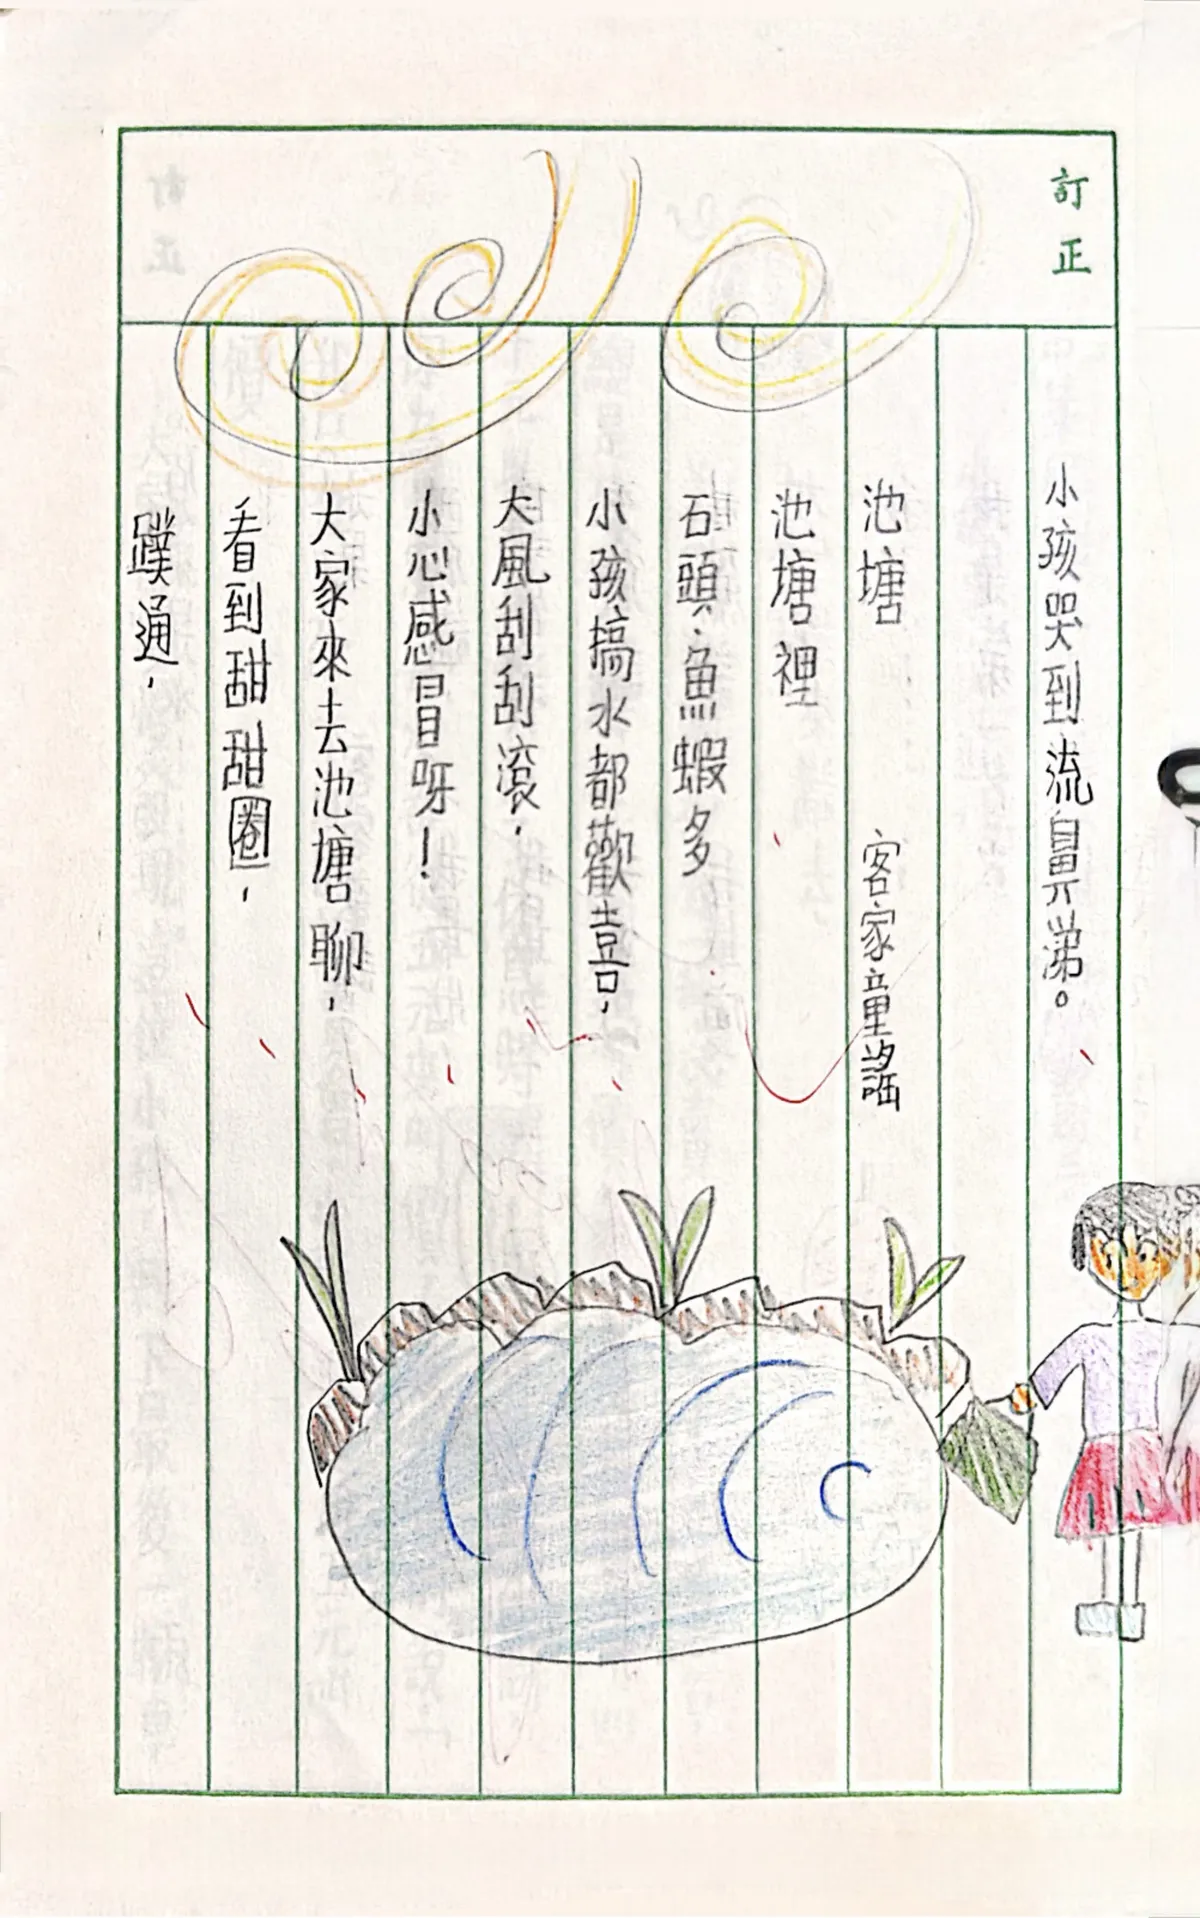 訂正
小孩哭到流鼻涕。
池塘 客家童謠
池塘裡
石頭、魚蝦多
小孩搞水都歡喜，
大風刮刮滾，
小心感冒呀！
大家來去池塘聊，
看到甜甜圈，
蹼通，